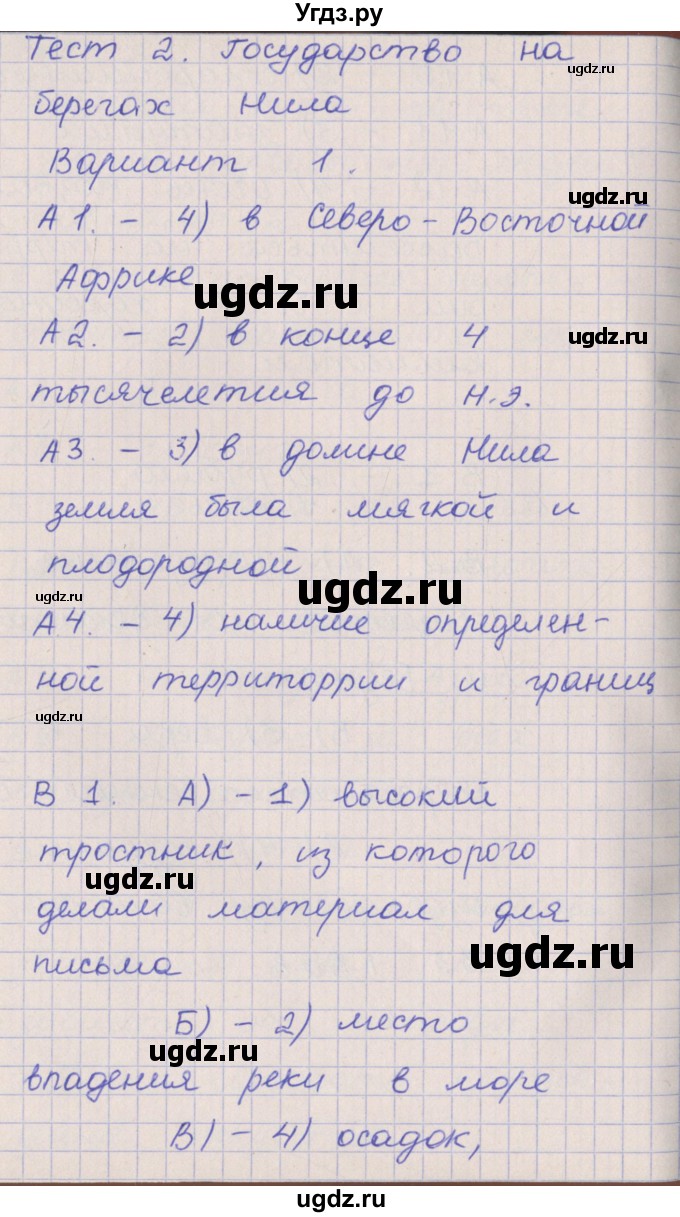 Угдз.ру
Тест 2. Государство на
ugdz.ru
берегах Нила
Вариант 1.
ugdz.ru
А1. - 4) в Северо-Восточной
Африке
ugdz.ru
А2. - 2) в конце 4
ugdz.ru
тысячелетия до н.э.
А3. - 3) в долине Нила
земля была мягкой и
плодородной
ugdz.ru
ugdz.ru
А4. - 4) наличие определен-
ной территоррии и границ
ugdz.ru
В 1. А) - 1) высокий
тростник, из которого
ugdz.ru
делали материал для
письма
ugdz.ru
Б) - 2) место
ugdz.ru
впадения реки в море
В) - 4) осадок,
ugdz.ru